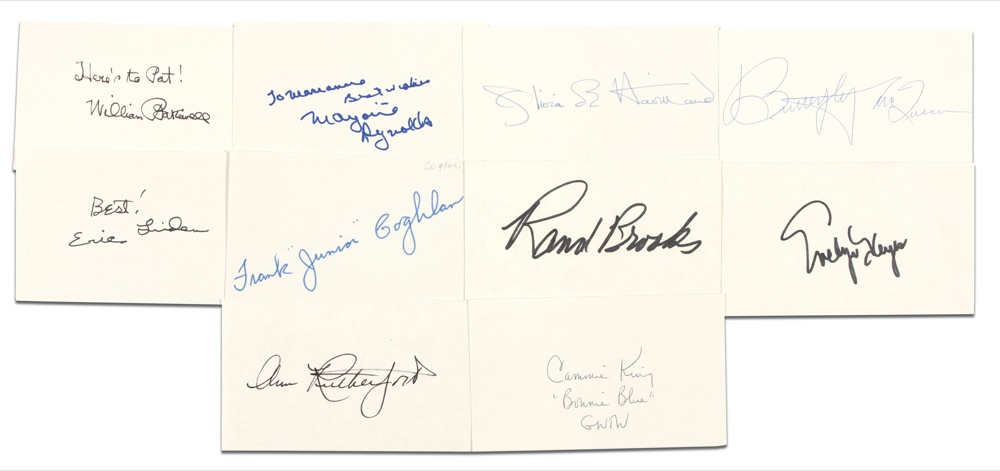 Here's to Pat!
William Bakewell
To Marianne
Best wishes
Marjorie
Reynolds
Olivia de Havilland
Butterfly McQueen
Best!
Eric Linden
Coghlan
Frank "Junior" Coghlan
Rand Brooks
Evelyn Keyes
Ann Rutherford
Cammie King
"Bonnie Blue"
GWTW